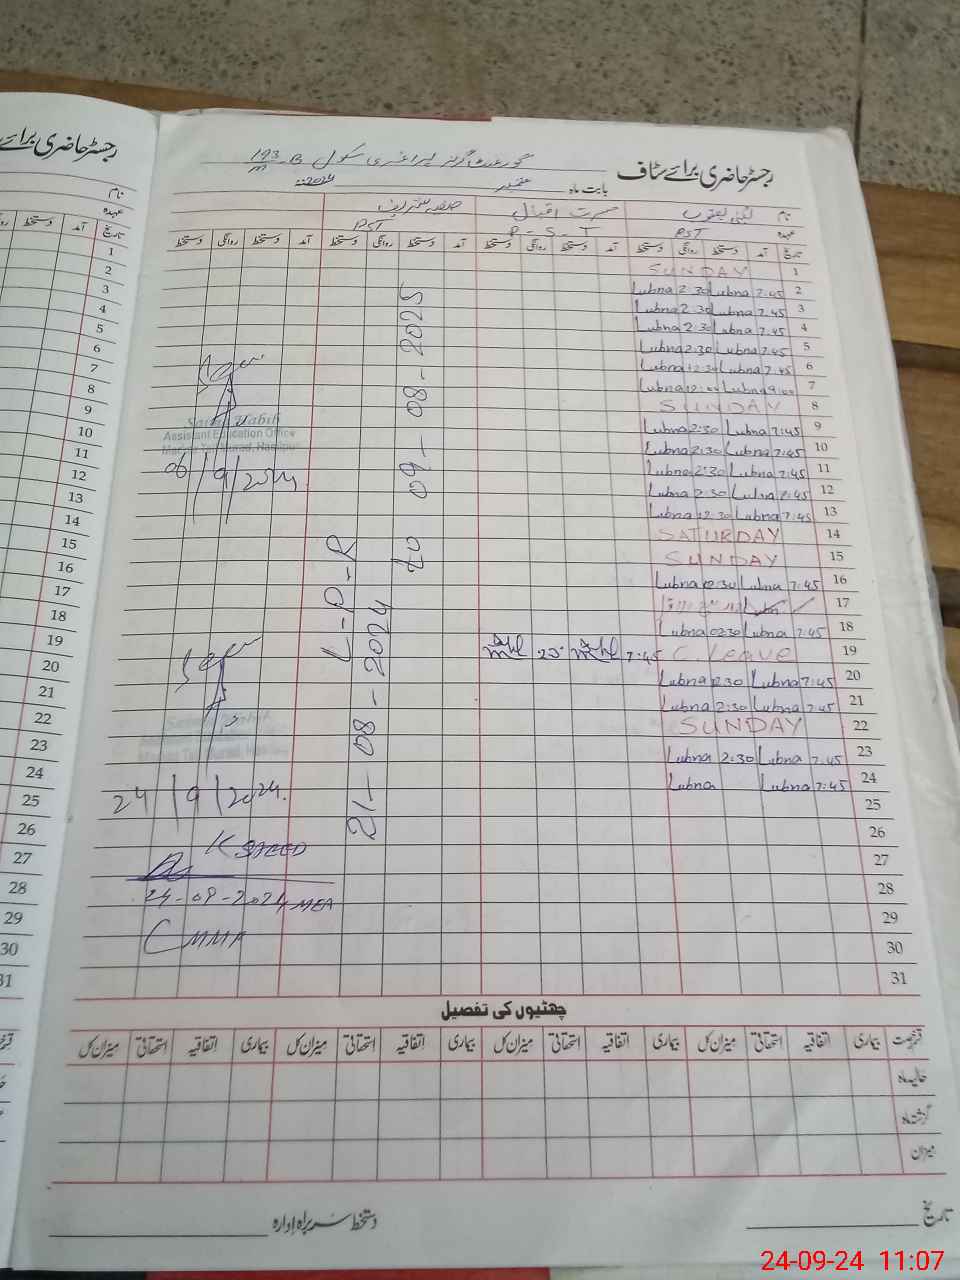 رجسٹر حاضری برائے
نام
عہدہ
تاریخ آمد دستخط
1
2
3
4
5
6
7
8
9
10
11
12
13
14
15
16
17
18
19
20
21
22
23
24
25
26
27
28
29
30
31
رجسٹر حاضری برائے سٹاف گورنمنٹ گرلز پرائمری سکول 193 B
بابت ماہ ستمبر 2024
نام لبنیٰ یعقوب مسرت اقبال
عہدہ PST P-S-T PST
تاریخ آمد دستخط روانگی دستخط آمد دستخط روانگی دستخط آمد دستخط روانگی دستخط آمد دستخط روانگی دستخط
SUNDAY 1
Lubna 2:30 Lubna 7:45 2
Lubna 2:30 Lubna 7:45 3
Lubna 2:30 Lubna 7:45 4
Lubna 2:30 Lubna 7:45 5
Lubna 12:30 Lubna 7:45 6
Lubna Lubna 7
SUNDAY 8
Lubna 2:30 Lubna 7:45 9
Lubna 2:30 Lubna 7:45 10
Lubna 2:30 Lubna 7:45 11
Lubna 2:30 Lubna 7:45 12
Lubna 12:30 Lubna 7:45 13
SATURDAY 14
SUNDAY 15
Lubna 2:30 Lubna 7:45 16
17
Lubna 02:30 Lubna 7:45 18
7:45 C. Leave 19
Lubna 2:30 Lubna 7:45 20
Lubna 2:30 Lubna 7:45 21
SUNDAY 22
Lubna 2:30 Lubna 7:45 23
Lubna Lubna 7:45 24
25
26
27
28
29
30
31
L-P-R
21-08-2024 to 09-08-2025
Saima Habib
Assistant Education Office
06/9/2024
24/9/2024.
K SAEED
24-09-2024 MEA
CMMF
چھٹیوں کی تفصیل
قسم رخصت بیماری اتفاقیہ استحقاقی میزان کل بیماری اتفاقیہ استحقاقی میزان کل بیماری اتفاقیہ استحقاقی میزان کل بیماری اتفاقیہ استحقاقی میزان کل
حالیہ ماہ
گزشتہ ماہ
میزان
تاریخ
دستخط سربراہ ادارہ
24-09-24 11:07